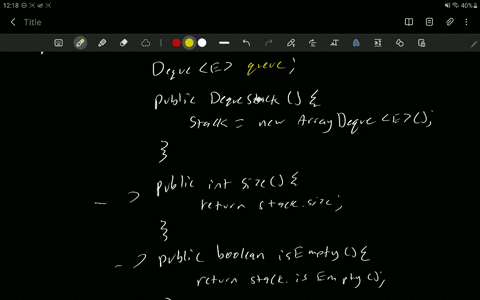 12:18
40%
Title
Deque <E> queue;
public Deque stack () {
stack = new ArrayDeque <E>();
}
public int size() {
return stack.size;
}
public boolean isEmpty() {
return stack.isEmpty();